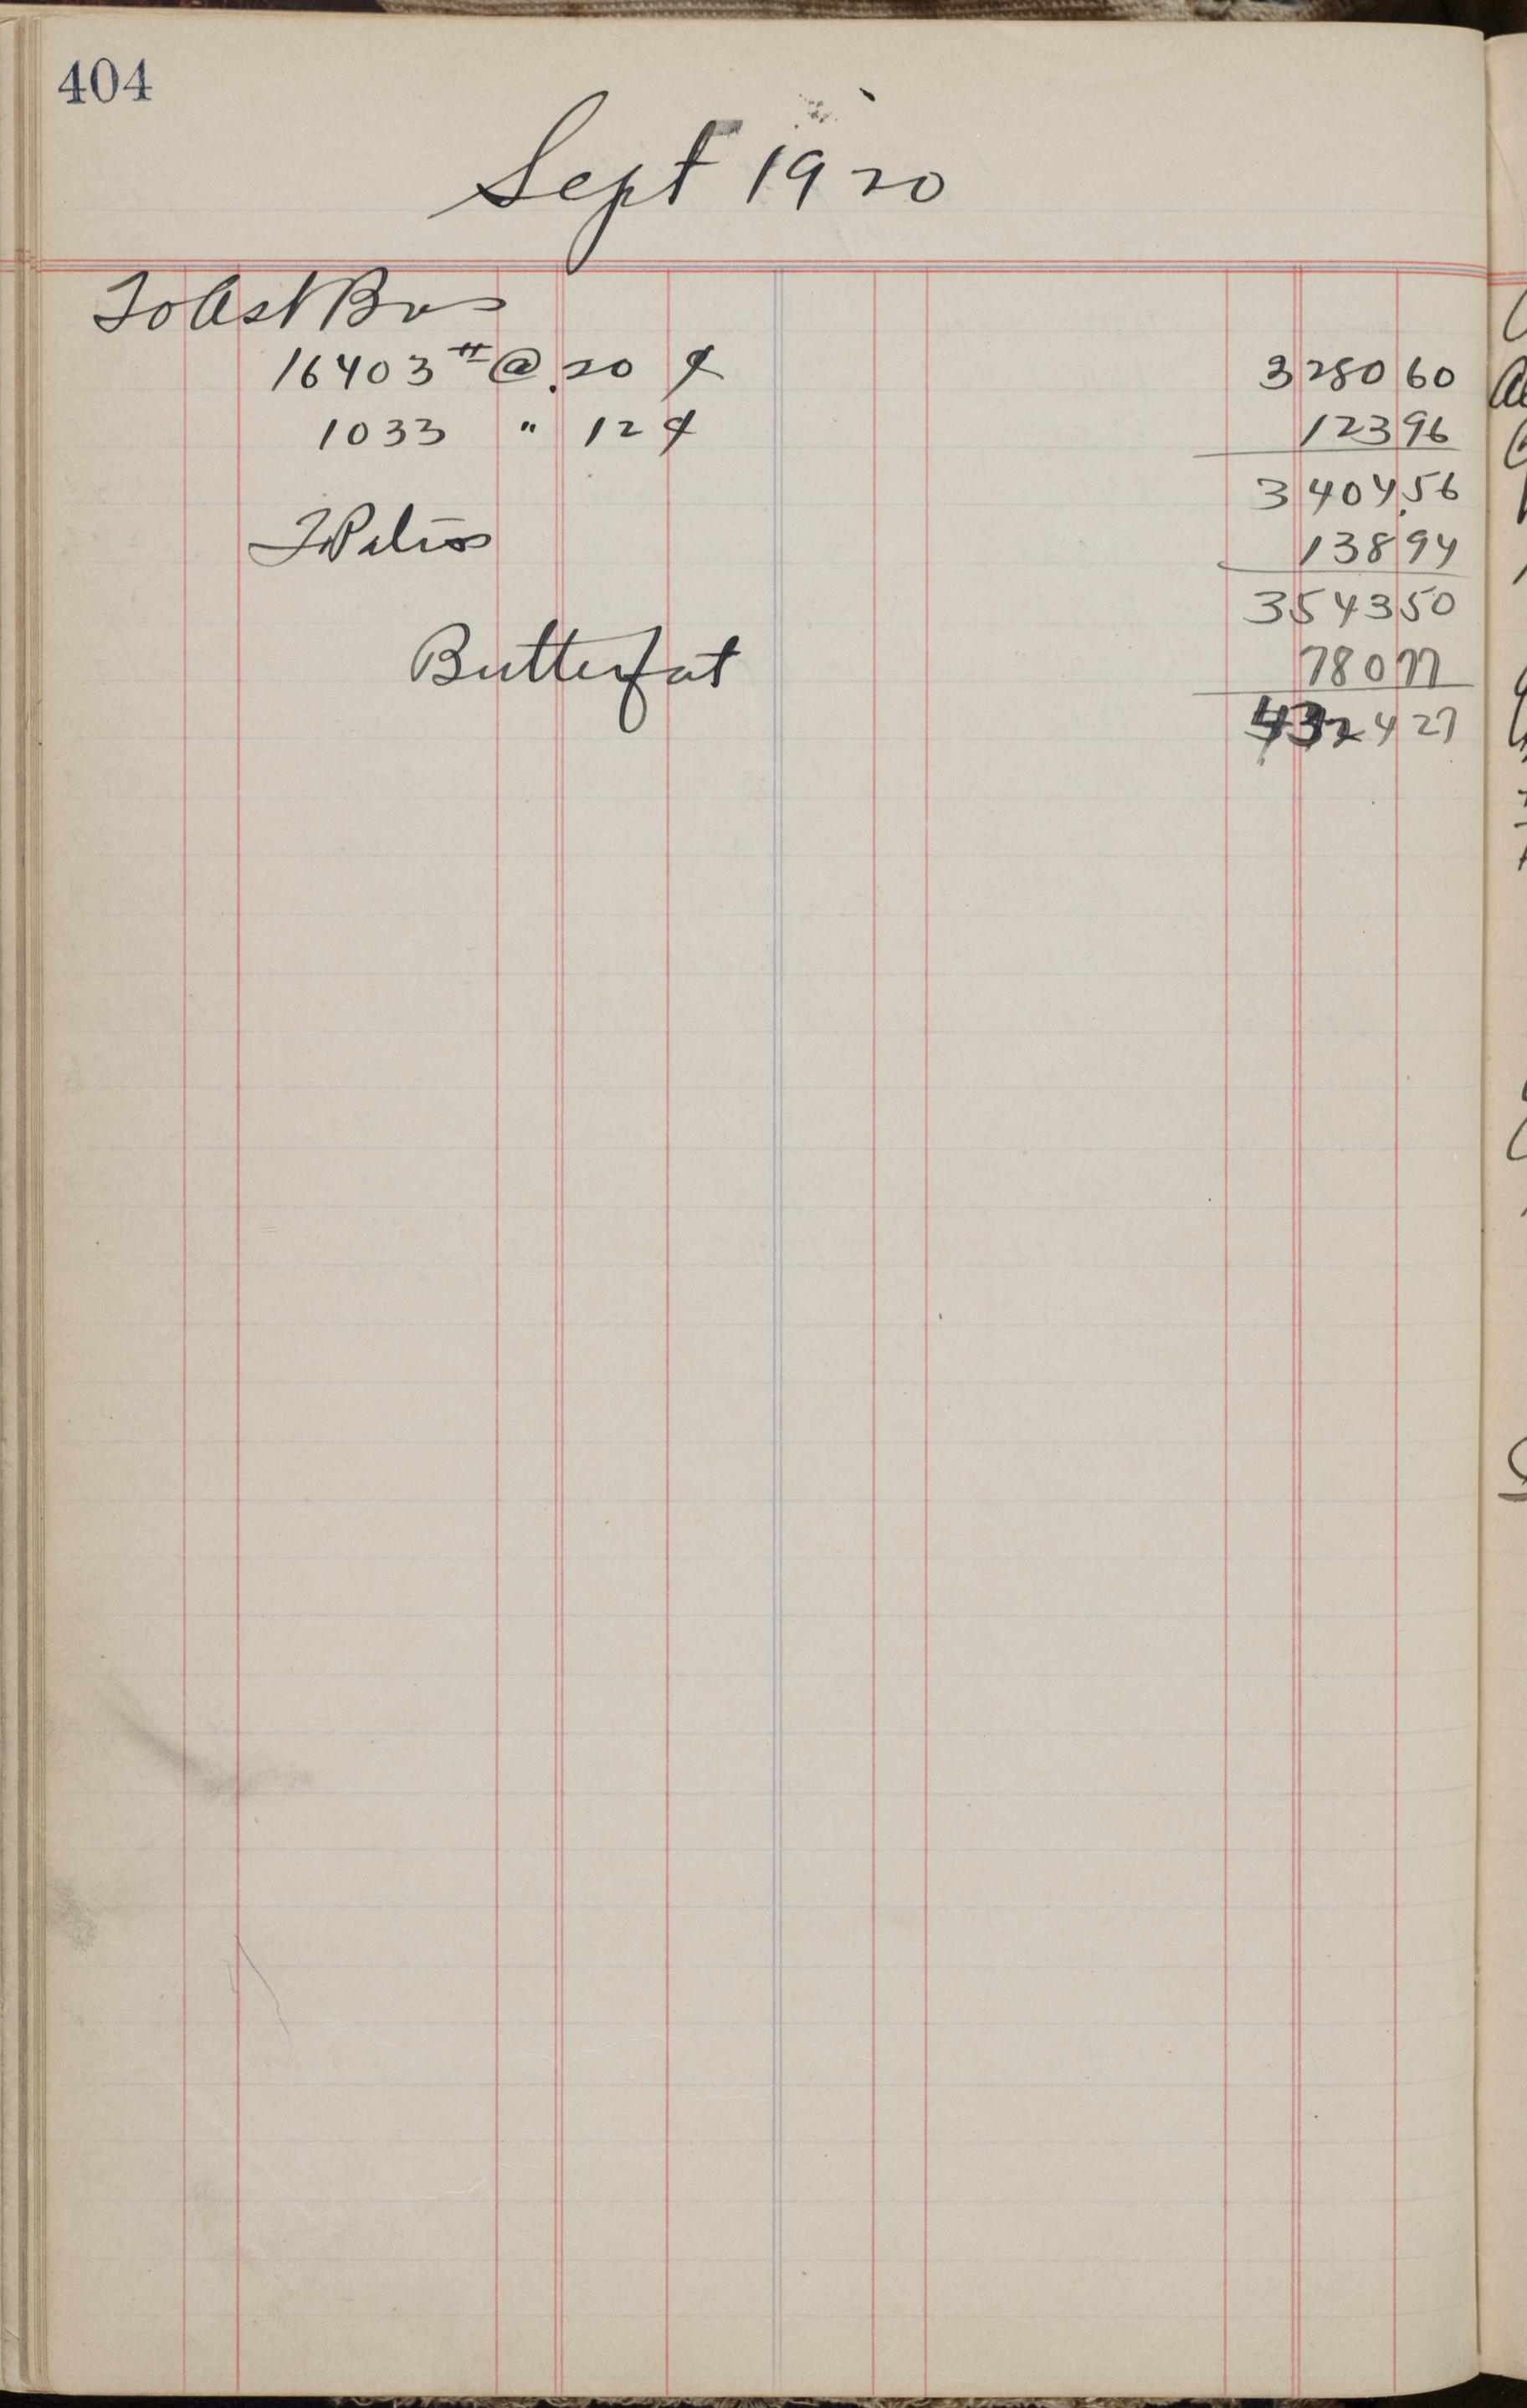 404
Sept 1920
16403 # @ .20 ¢ 3280 60
1033 " 12 ¢ 123 96
3404.56
138 94
3543 50
Butterfat 780 77
4324 27